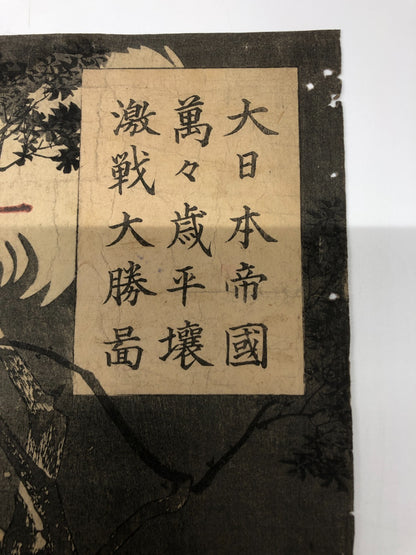 大日本帝國
萬々歳平壌
激戰大勝啚